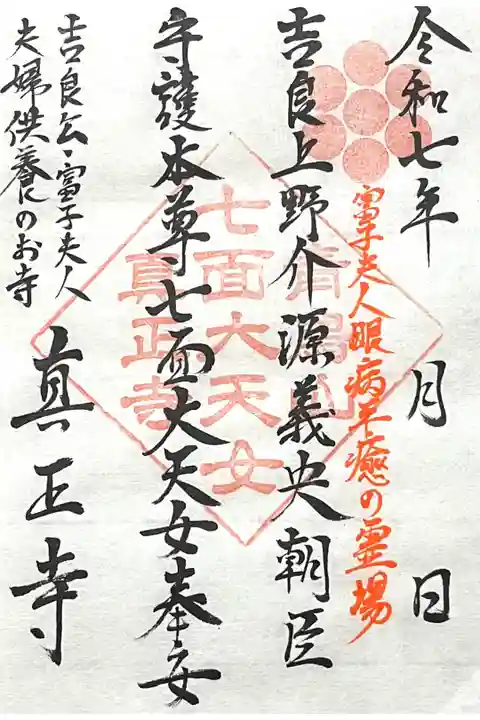 令和七年 月 日
富子夫人眼病平癒の霊場
吉良上野介源義央朝臣
守護本尊七面大天女奉安
真正寺
吉良公・富子夫人
夫婦供養のお寺
七面大天女
真正寺